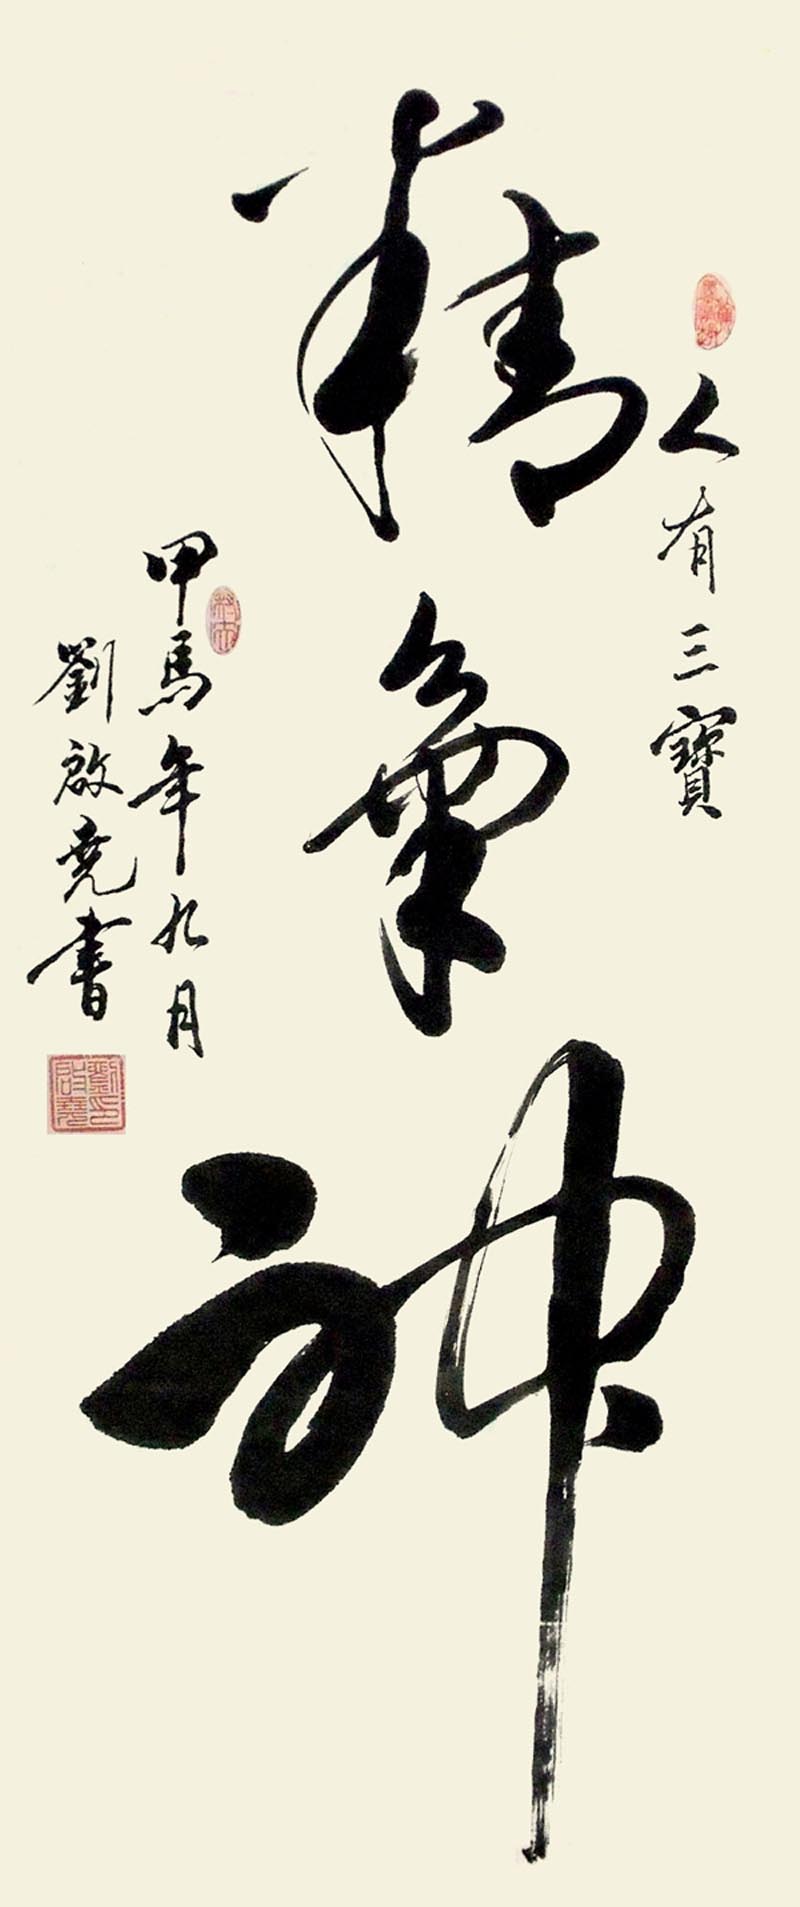 人有三寶
精氣神
甲馬年九月
劉啟堯書
劉啟堯印